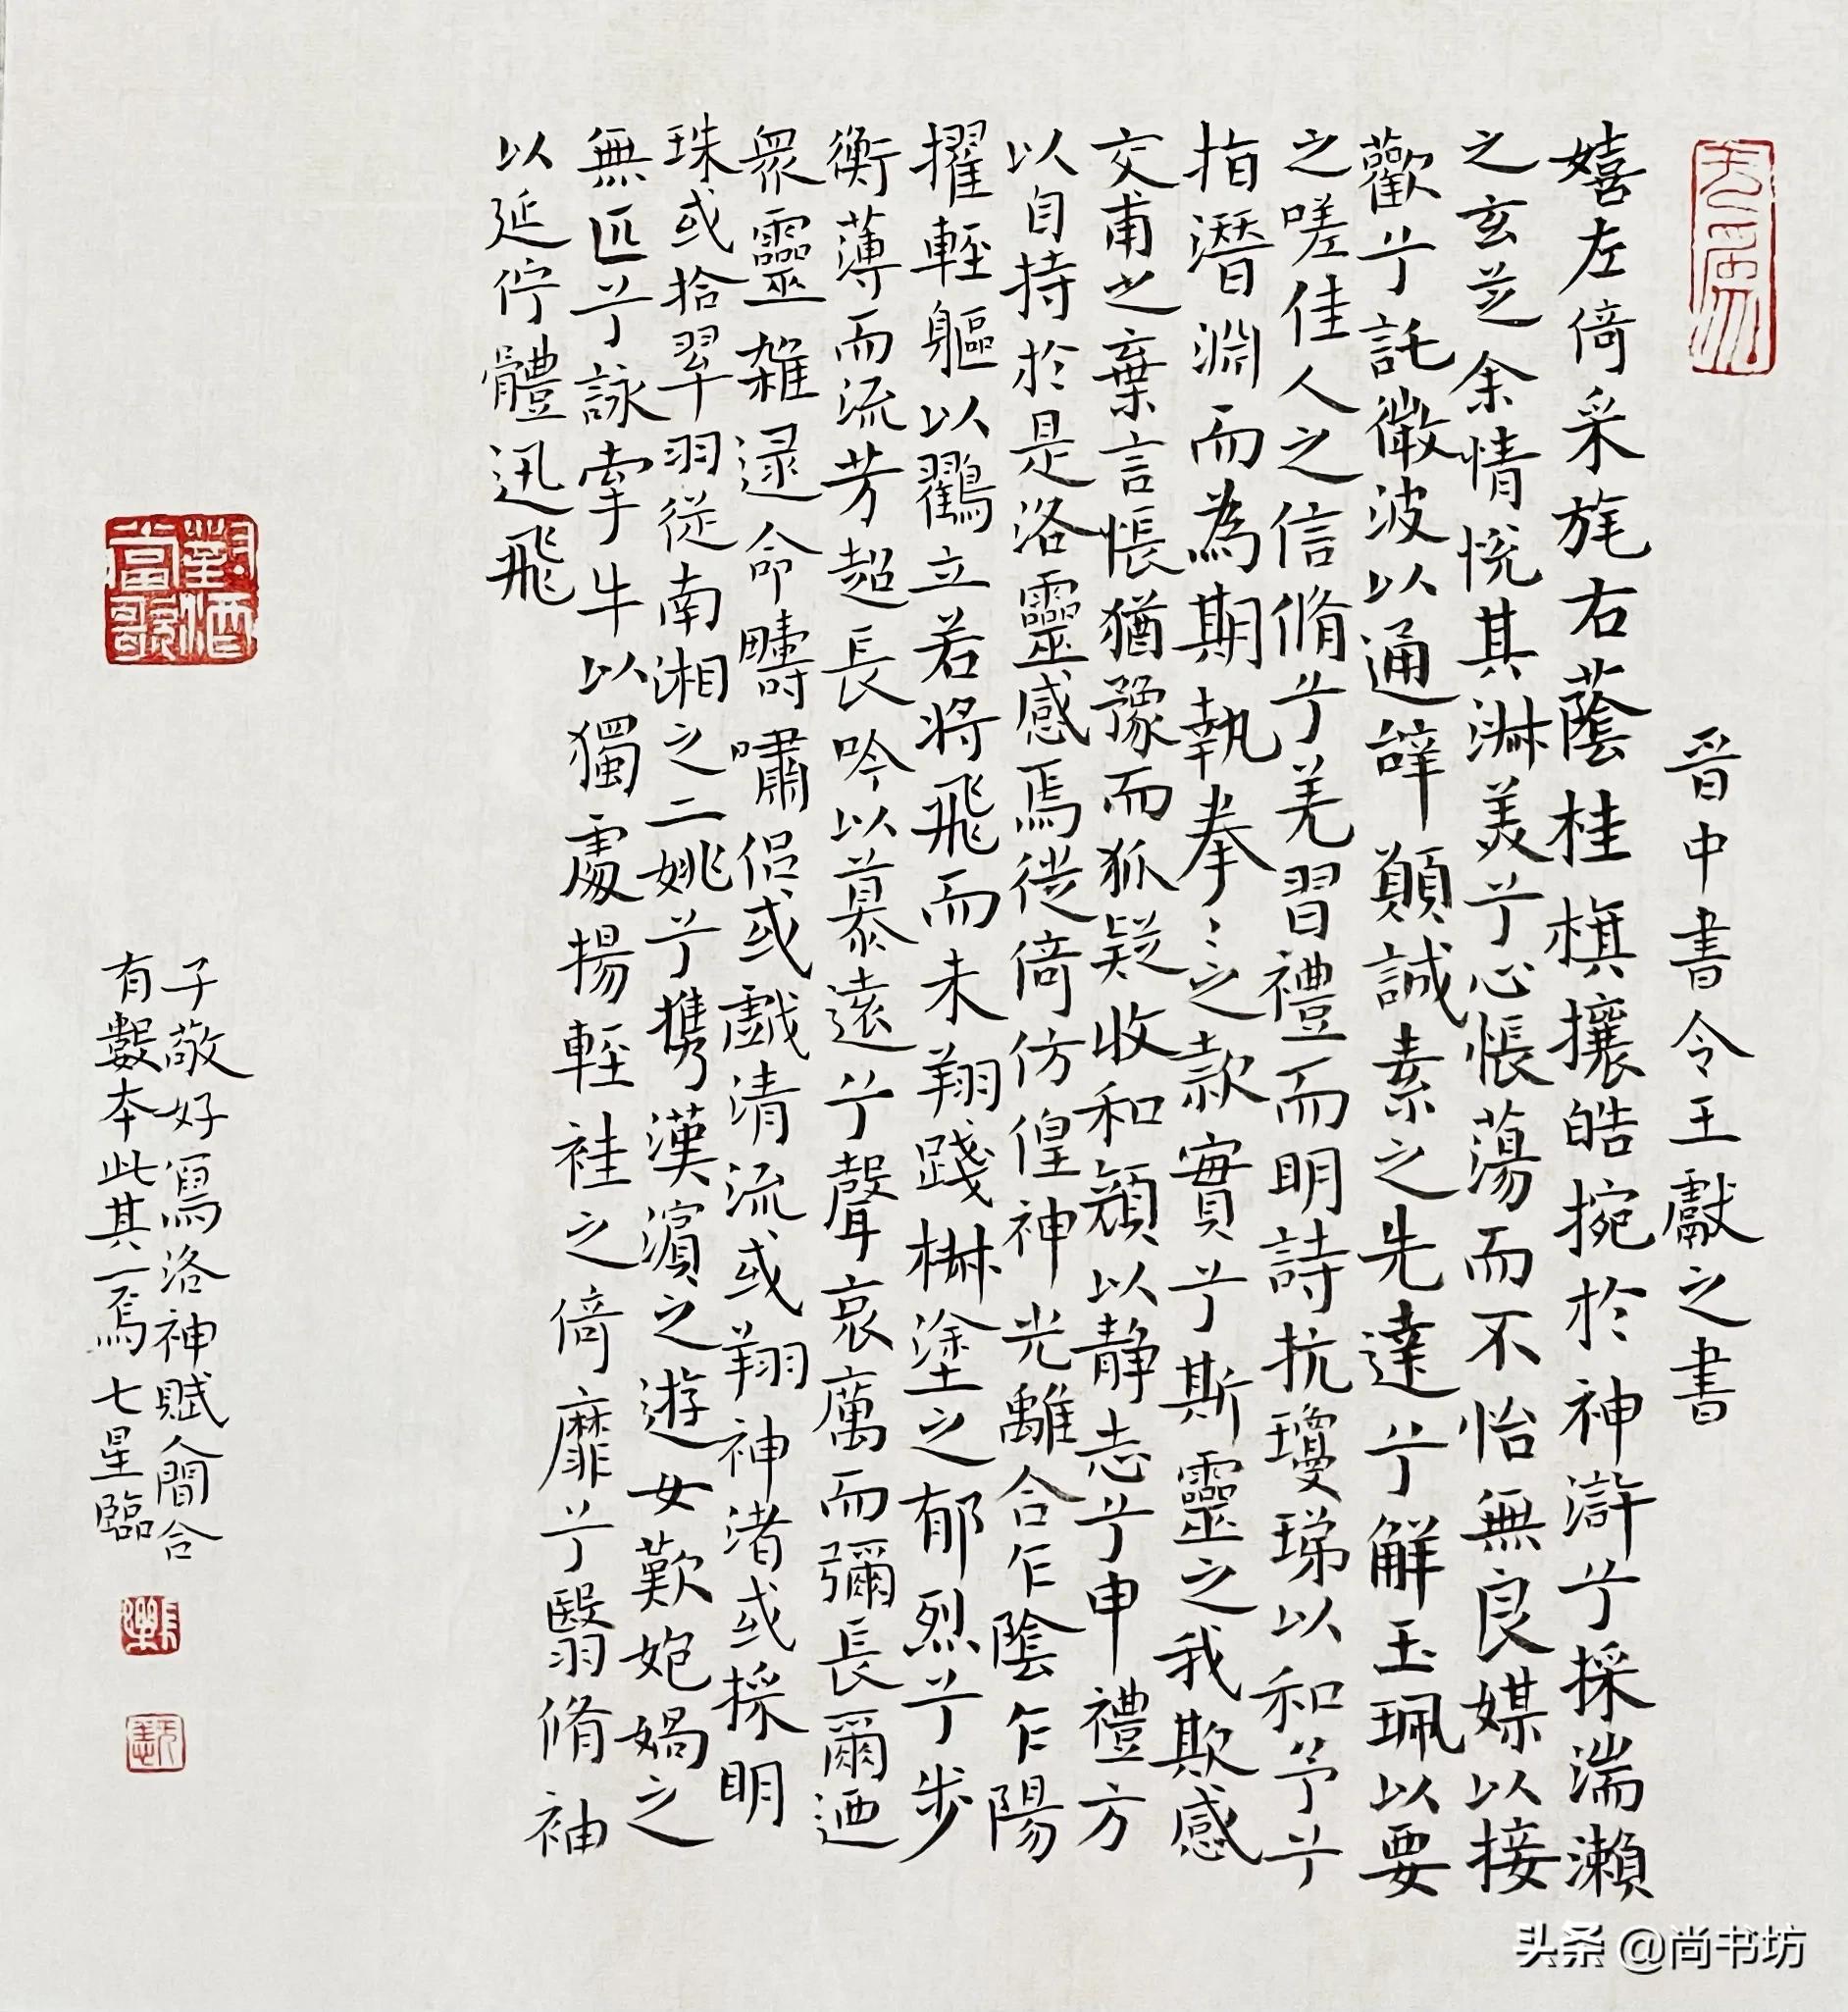 晉中書令王獻之書
嬉左倚采旄右蔭桂旗攘皓捥於神滸兮採湍瀨
之玄芝余情悅其淋美兮心悵蕩而不怡無良媒以接
歡兮託微波以通辭願誠素之先達兮解玉珮以要
之嗟佳人之信脩兮羌習禮而明詩抗瓊珶以和予兮
指潛淵而為期執拳〻之款實兮斯靈之我欺感
交甫之棄言悵猶豫而狐疑收和顏以静志兮申禮方
以自持於是洛靈感焉徙倚仿偟神光離合乍陰乍陽
擢輕軀以鸖立若將飛而未翔踐椒塗之郁烈兮步
蘅薄而流芳超長吟以慕遠兮聲哀厲而彌長爾迺
眾靈雜遝命疇嘯侶或戲清流或翔神渚或採明
珠或拾翠羽從南湘之二姚兮攜漢濱之遊女歎㚿媧之
無匹兮詠牽牛以獨處揚輕袿之倚靡兮翳脩袖
以延佇體迅飛
對酒當歌
子敬好寫洛神賦人間合
有數本此其一焉七星臨
头条 @尚书坊